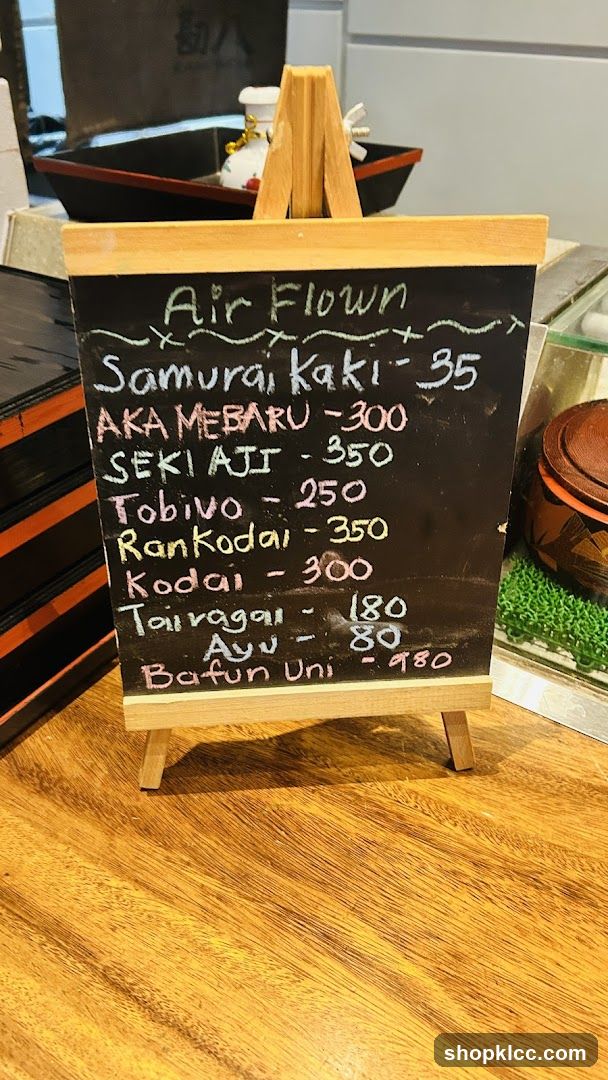 勘八
Air Flown
Samurai Kaki - 35
AKA MEBARU - 300
SEKI AJI - 350
Tobiuo - 250
Rankodai - 350
Kodai - 300
Tairagai - 180
Ayu - 80
Bafun Uni - 980
shopklcc.com